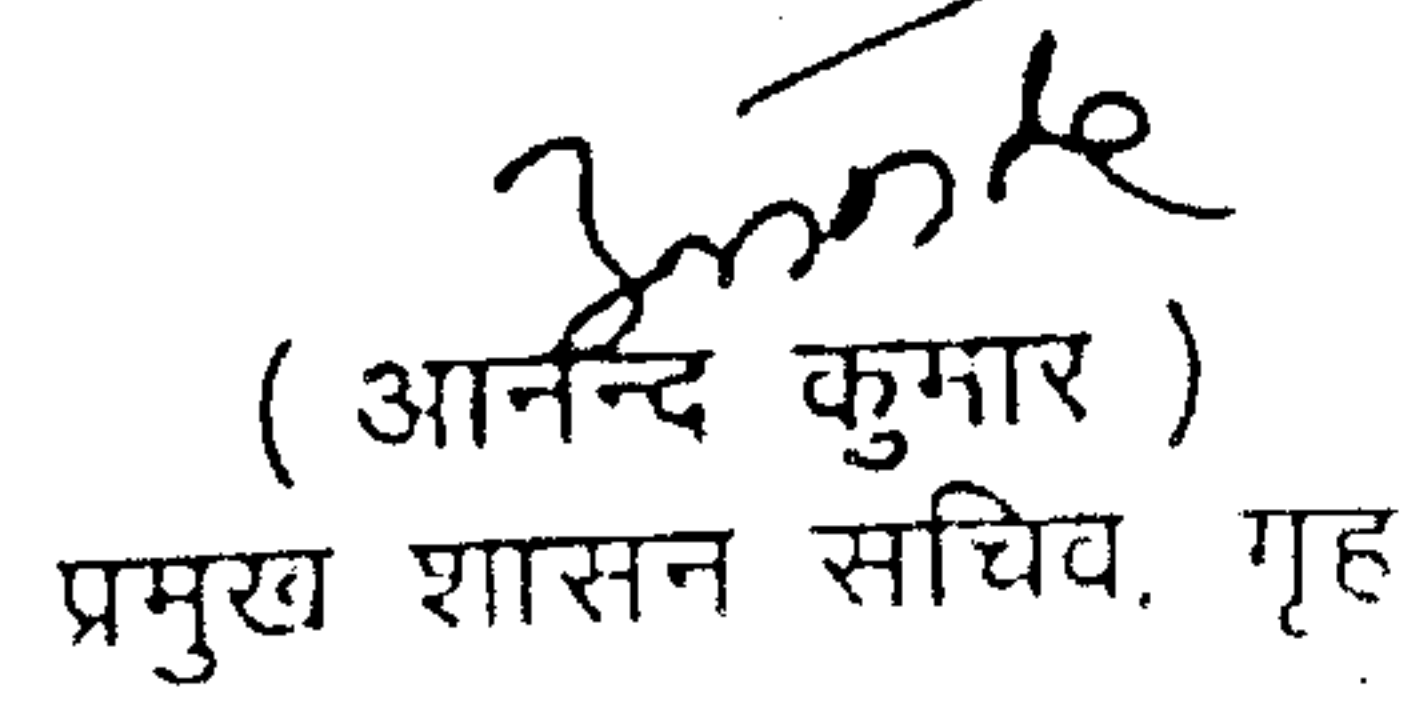 ( आनन्द कुमार )
प्रमुख शासन सचिव. गृह